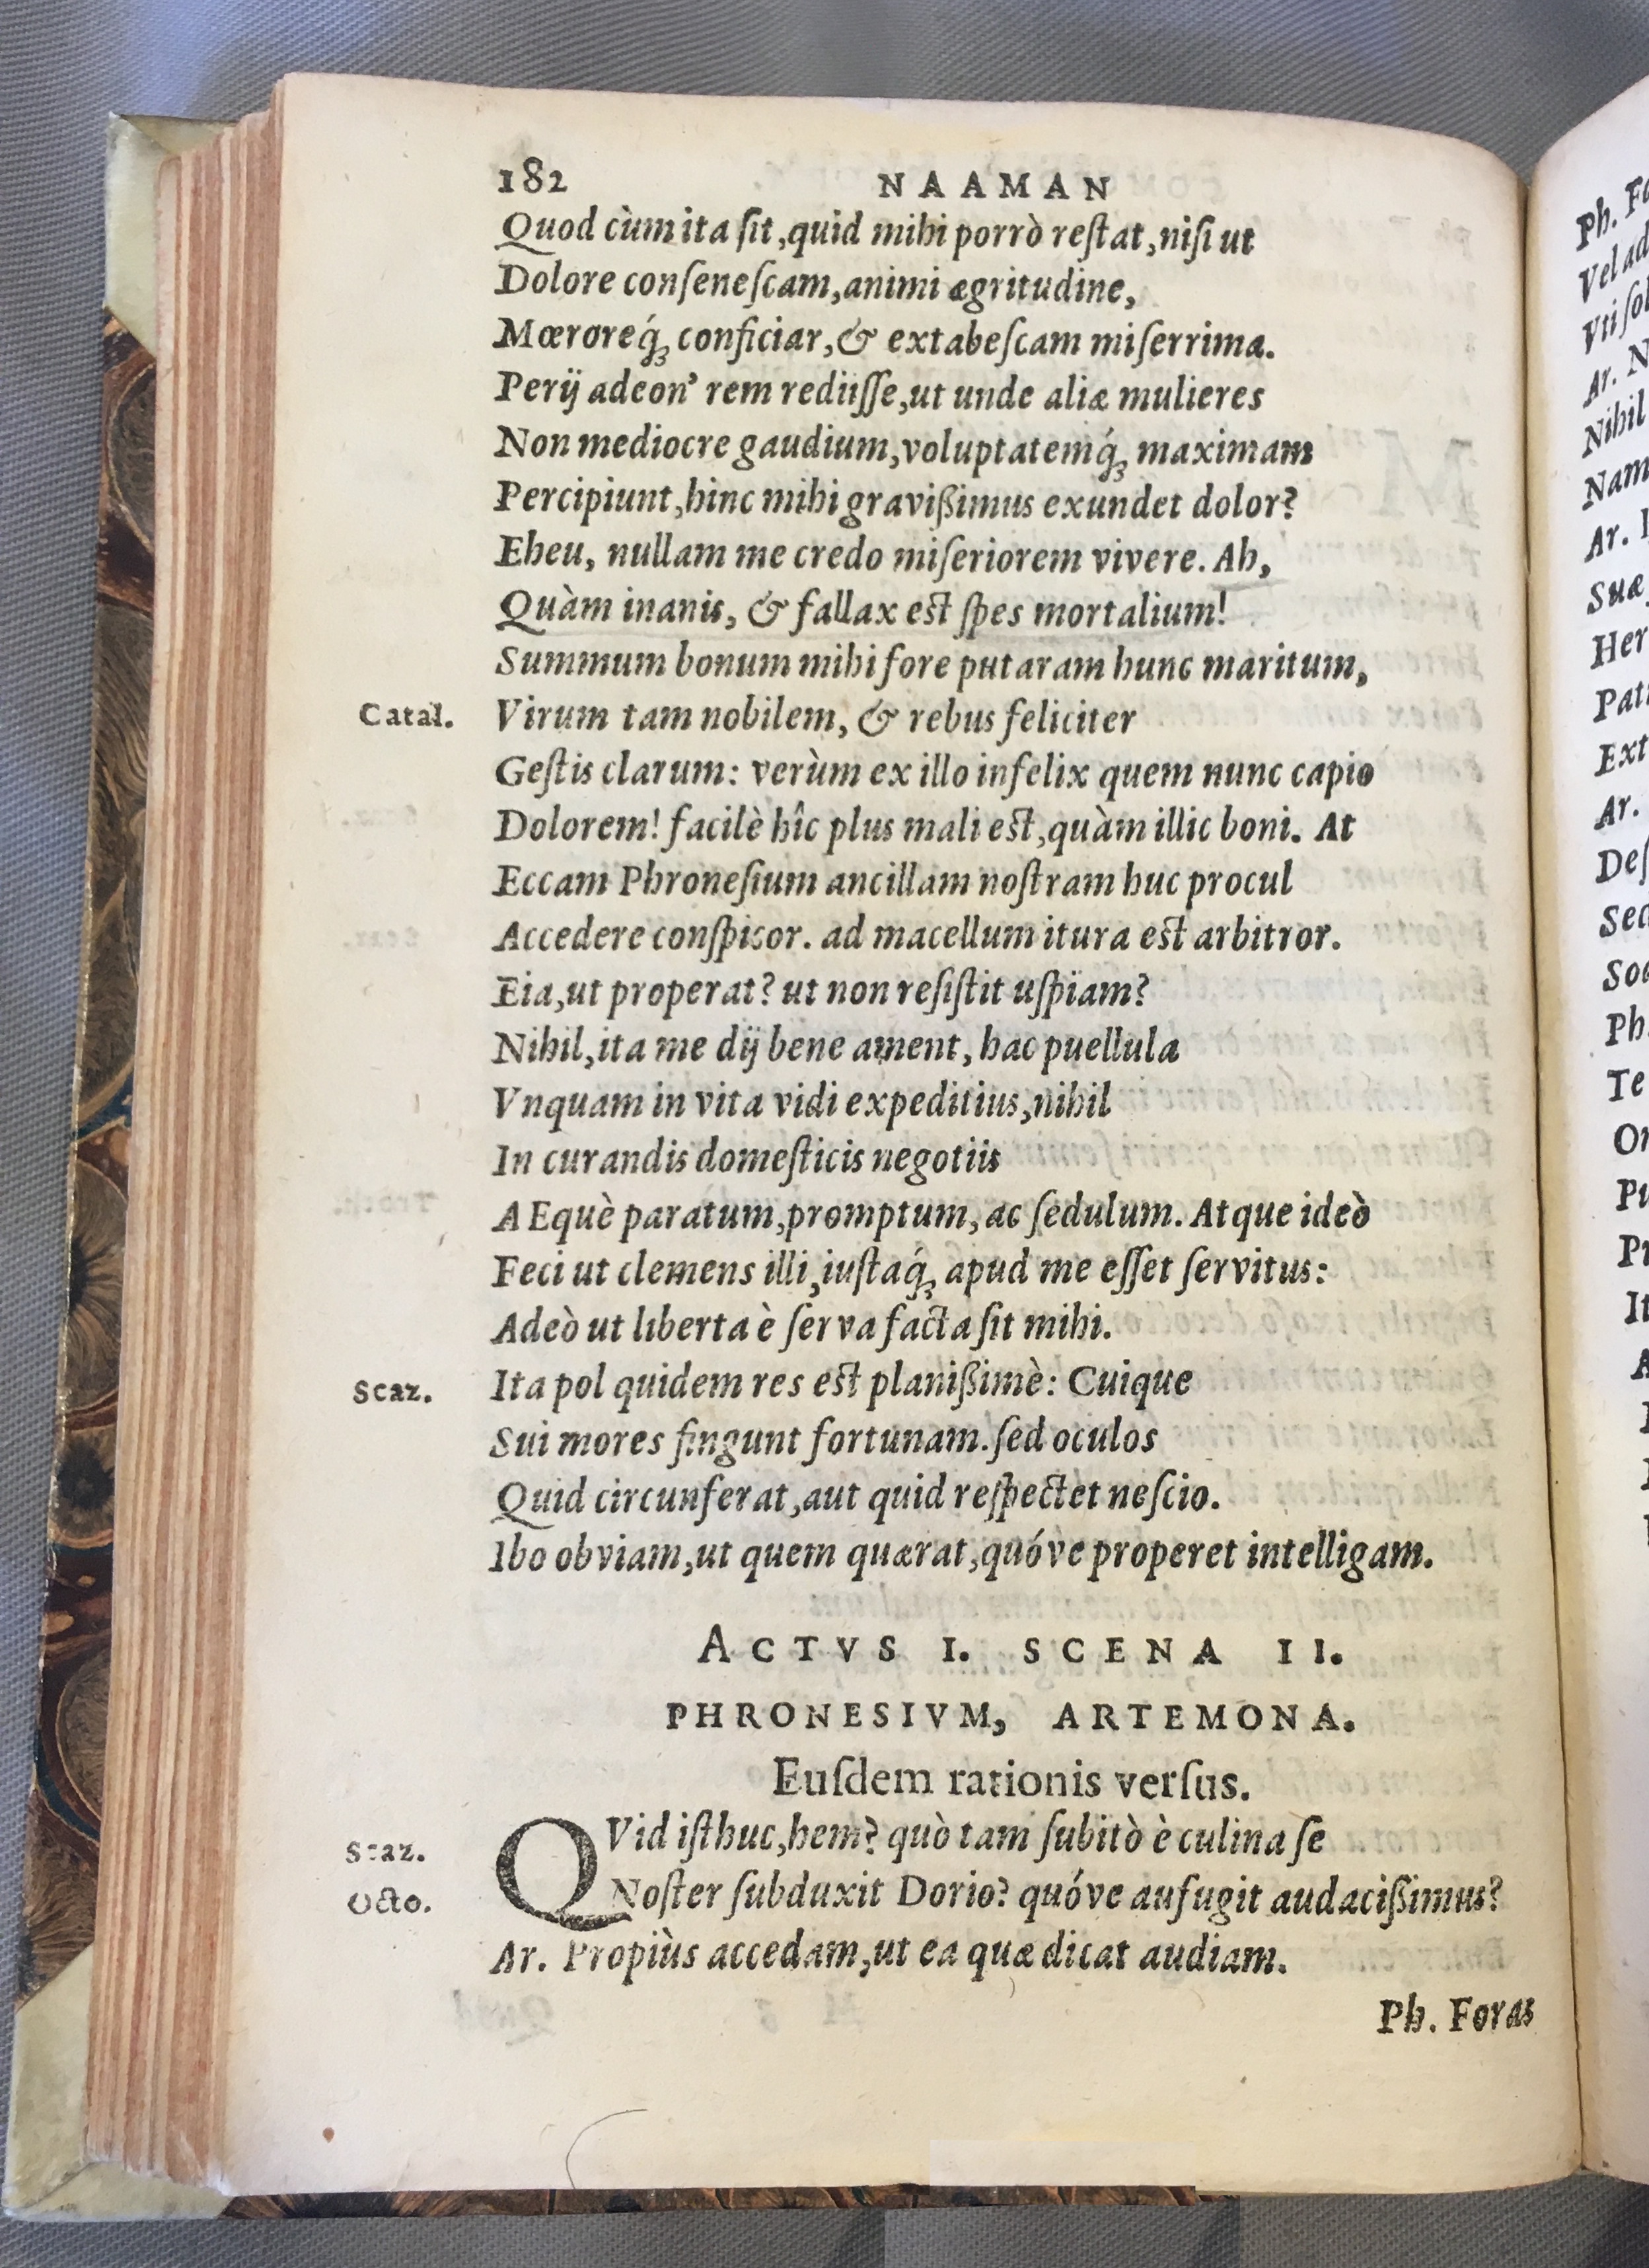 182 NAAMAN
Quod cùm ita ſit, quid mihi porrò reſtat, niſi ut
Dolore conſeneſcam, animi ægritudine,
Mœroreq́ꝫ conficiar, & extabeſcam miſerrima.
Perij adeon' rem rediiſſe, ut unde aliæ mulieres
Non mediocre gaudium, voluptatemq́ꝫ maximam
Percipiunt, hinc mihi graviſſimus exundet dolor?
Eheu, nullam me credo miſeriorem vivere. Ah,
Quàm inanis, & fallax eſt ſpes mortalium!
Summum bonum mihi fore putaram hunc maritum,
Catal. Virum tam nobilem, & rebus feliciter
Geſtis clarum: verùm ex illo infelix quem nunc capio
Dolorem! facilè hîc plus mali eſt, quàm illic boni. At
Eccam Phroneſium ancillam noſtram huc procul
Accedere conſpicor. ad macellum itura eſt arbitror.
Eia, ut properat? ut non reſiſtit uſpiam?
Nihil, ita me dij bene ament, hac puellula
Vnquam in vita vidi expeditius, nihil
In curandis domeſticis negotiis
AEquè paratum, promptum, ac ſedulum. Atque ideò
Feci ut clemens illi, iuſtaq́ꝫ apud me eſſet ſervitus:
Adeò ut liberta è ſerva facta ſit mihi.
Scaz. Ita pol quidem res eſt planißimè: Cuique
Sui mores fingunt fortunam. ſed oculos
Quid circunferat, aut quid reſpectet neſcio.
Ibo obviam, ut quem quærat, quóve properet intelligam.
ACTVS I. SCENA II.
PHRONESIVM, ARTEMONA.
Euſdem rationis verſus.
Scaz. QVid iſthuc, hem? quò tam ſubitò è culina ſe
Octo. Noſter ſubduxit Dorio? quóve aufugit audacißimus?
Ar. Propiùs accedam, ut ea quæ dicat audiam.
Ph. Foras
Ph. Fo
Vel ad
Vti ſol
Ar. N
Nihil
Nam
Ar. I
Suæ
Her
Pat
Ext
Ar.
Deſ
Sed
Soc
Ph.
Te